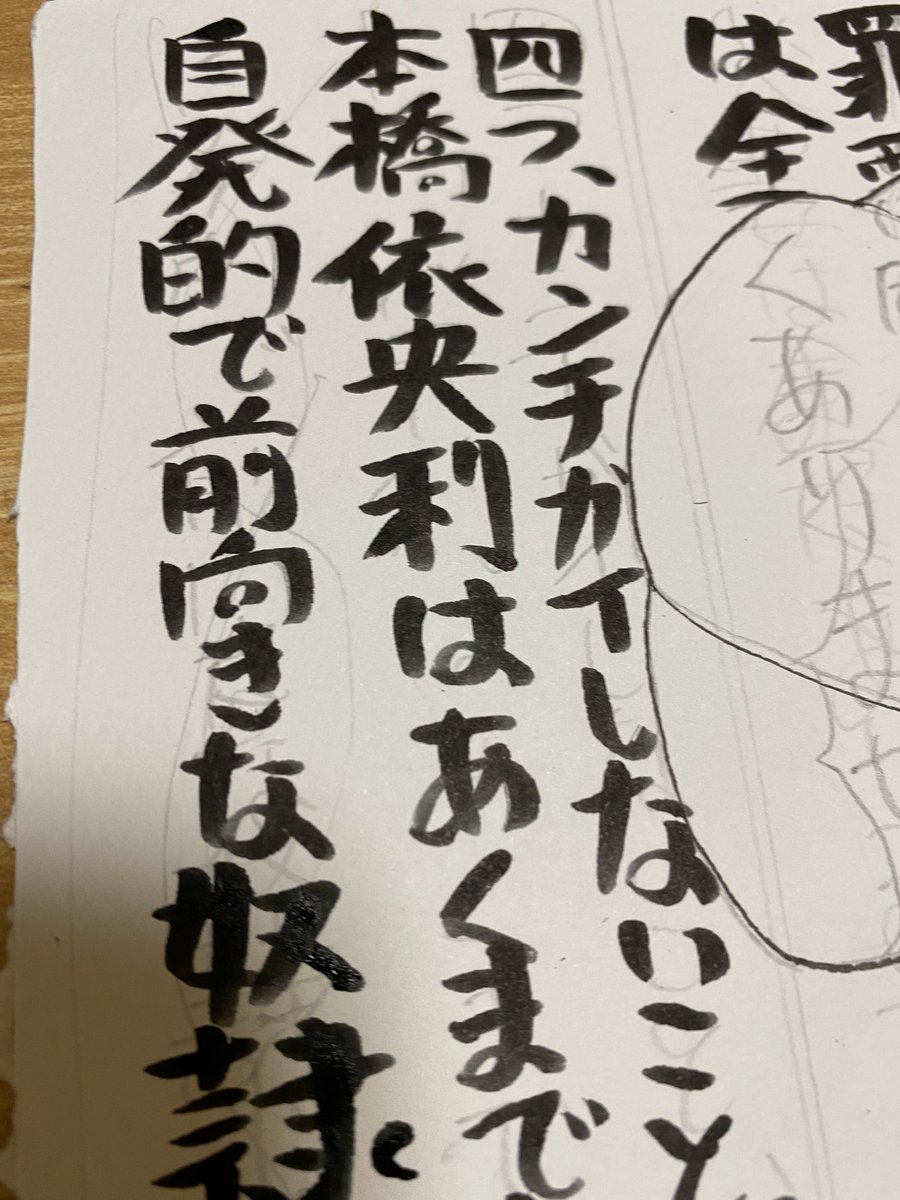 罪
は全
四つ、カンチガイしないこと
本橋依央利はあくまで
自発的で前向きな奴隷
くあり